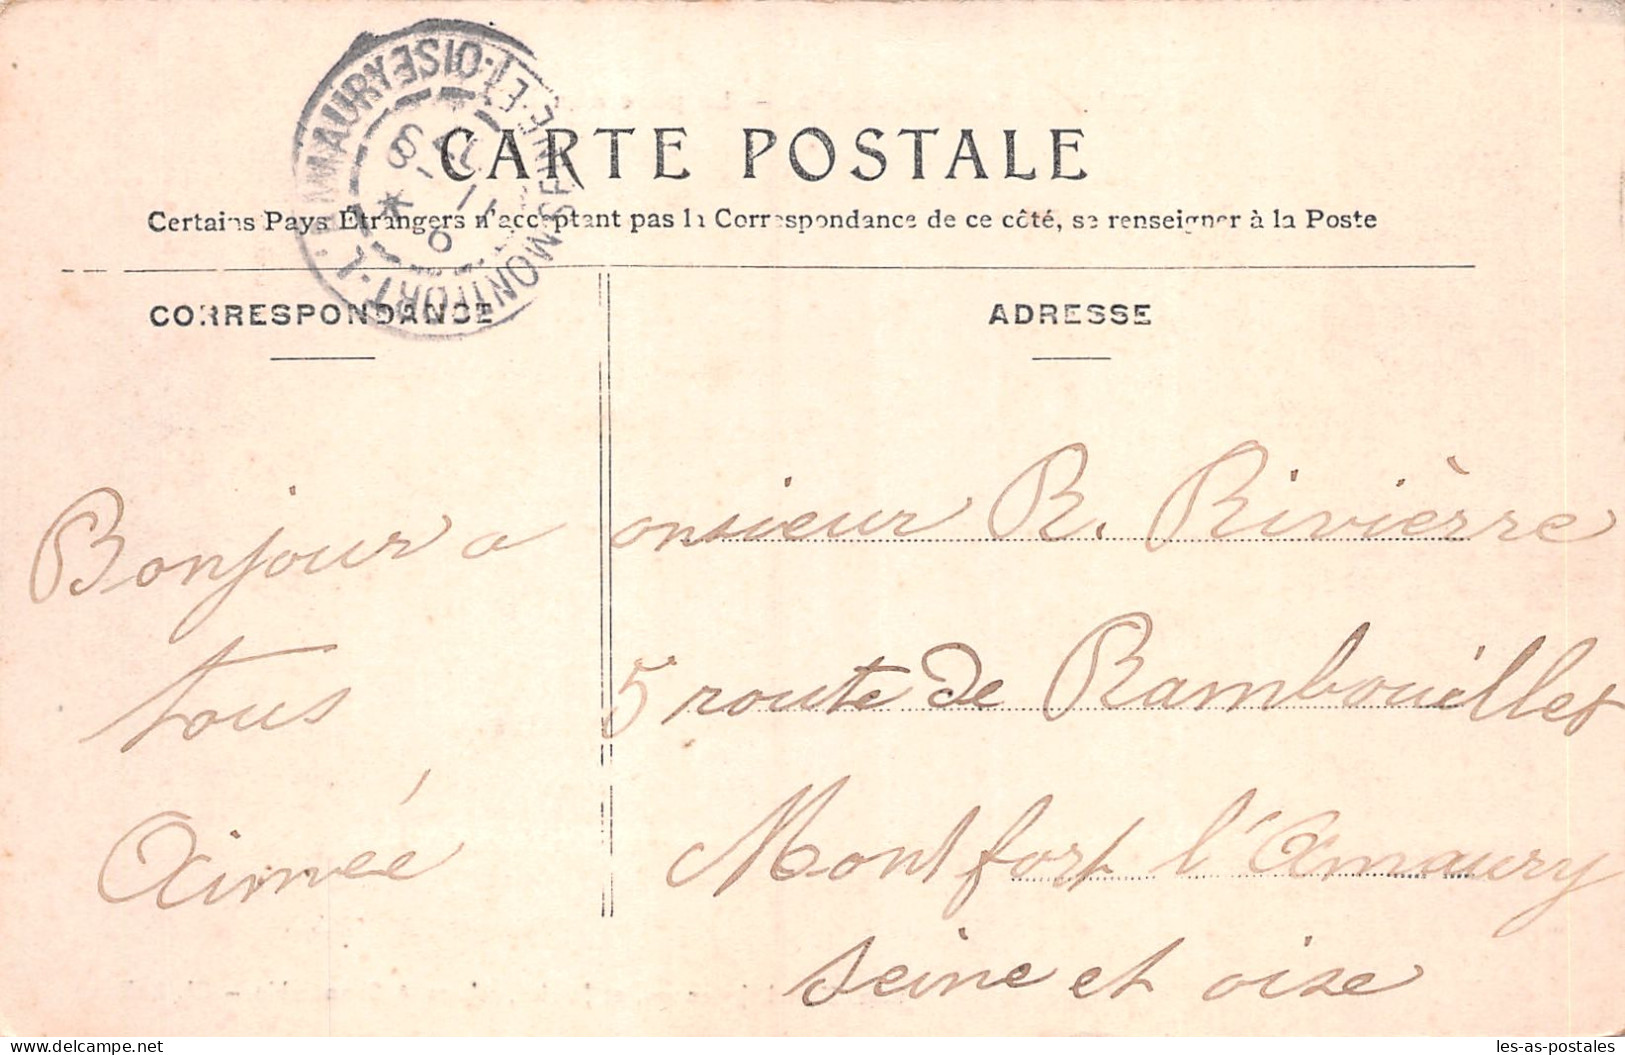 CARTE POSTALE
Certains Pays Étrangers n'acceptent pas la Correspondance de ce côté, se renseigner à la Poste
CORRESPONDANCE
ADRESSE
MONTFORT-L'AMAURY SEINE-ET-OISE
Bonjour a
tous
Aimée
onsieur R. Rivièrre
5 route de Rambouillet
Montfort l'Amaury
seine et oise
delcampe.net
les-as-postales